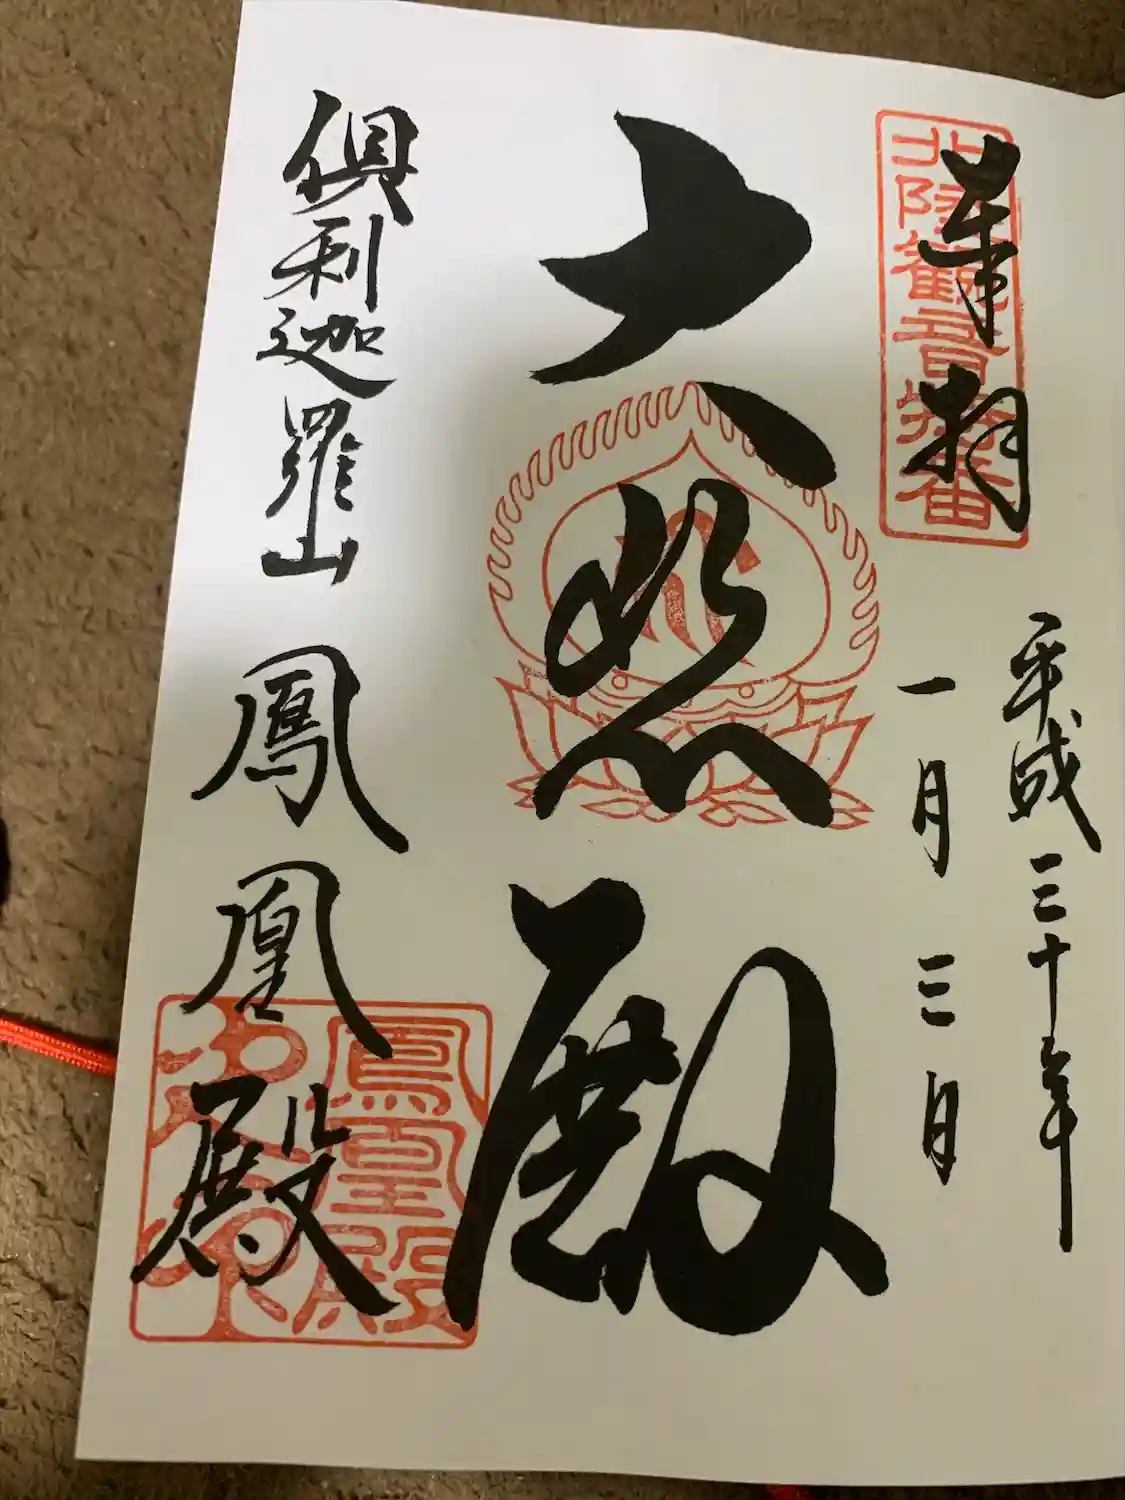 奉拝
北陸観音特番
平成三十年
一月三日
大悲殿
倶利迦羅山
鳳凰殿
鳳凰殿